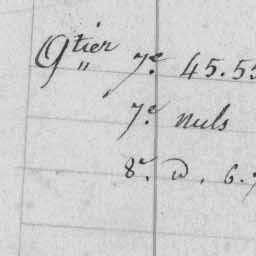 9tier 7.e 45.55
7.e nuls
8.e d. 6.